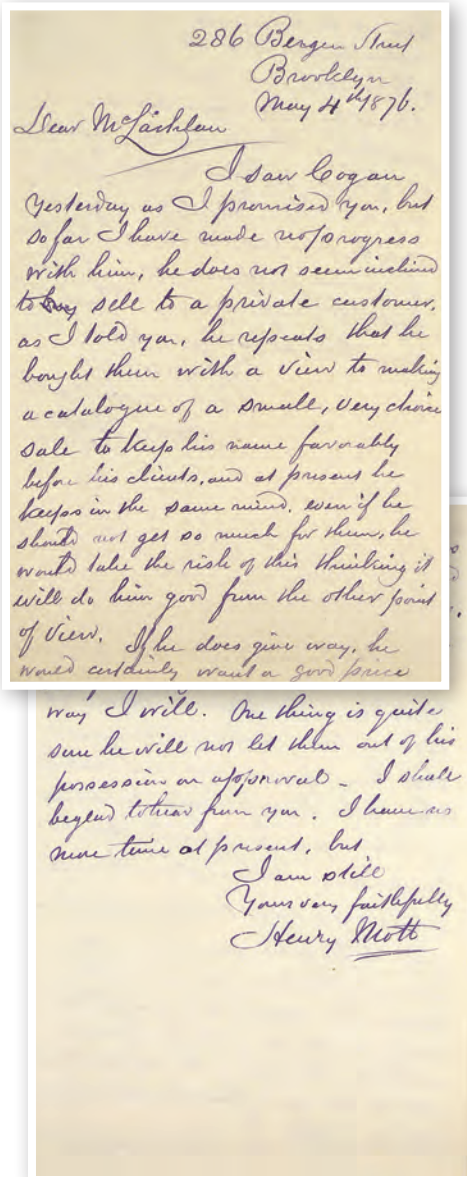 286 Bergen Street
Brooklyn
May 4th 1876.
Dear McLachlan
I saw Cogan
Yesterday as I promised you, but
so far I have made no progress
with him, he does not seem inclined
to buy sell to a private customer.
as I told you, he repeats that he
bought them with a view to making
a catalogue of a small, very choice
sale to keep his name favorably
before his clients, and at present he
keeps in the same mind. even if he
should not get so much for them, he
would take the risk of this thinking it
will do him good from the other point
of view. If he does give way, he
would certainly want a good price
way I will. One thing is quite
sure he will not let them out of his
possession on approval - I shall
be glad to hear from you. I have no
more time at present, but
I am still
Yours very faithfully
Henry Mott